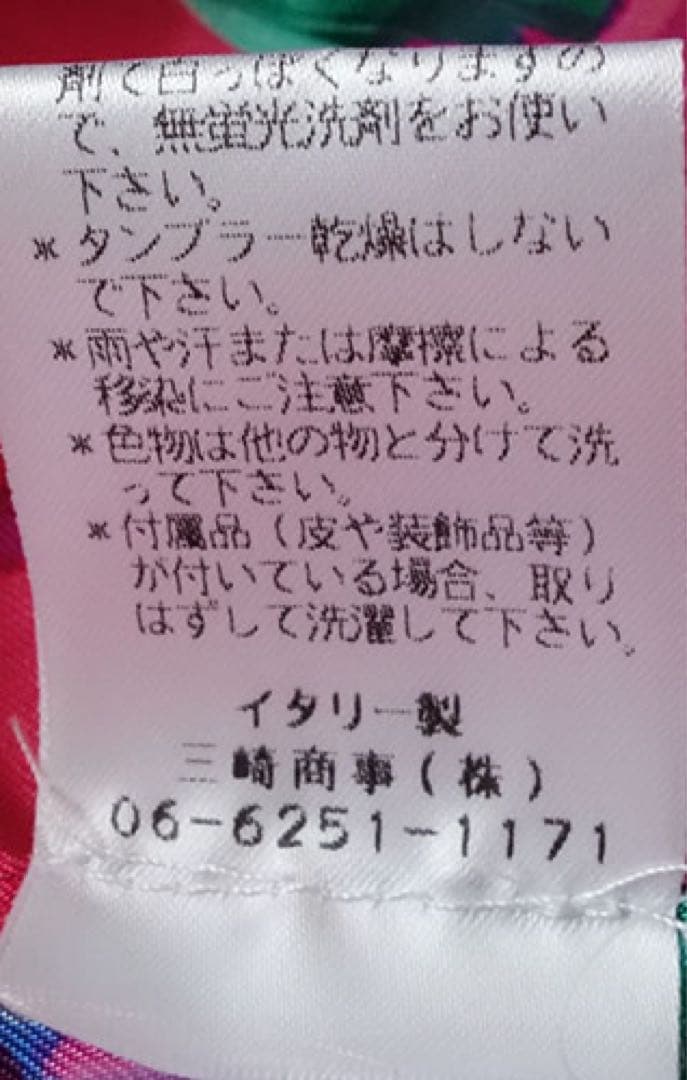 剤で白っぽくなりますの
で、無蛍光洗剤をお使い
下さい。
* タンブラー乾燥はしない
で下さい。
* 雨や汗または摩擦による
移染にご注意下さい。
* 色物は他の物と分けて洗
って下さい。
* 付属品(皮や装飾品等)
が付いている場合、取り
はずして洗濯して下さい。
イタリー製
三崎商事(株)
06-6251-1171